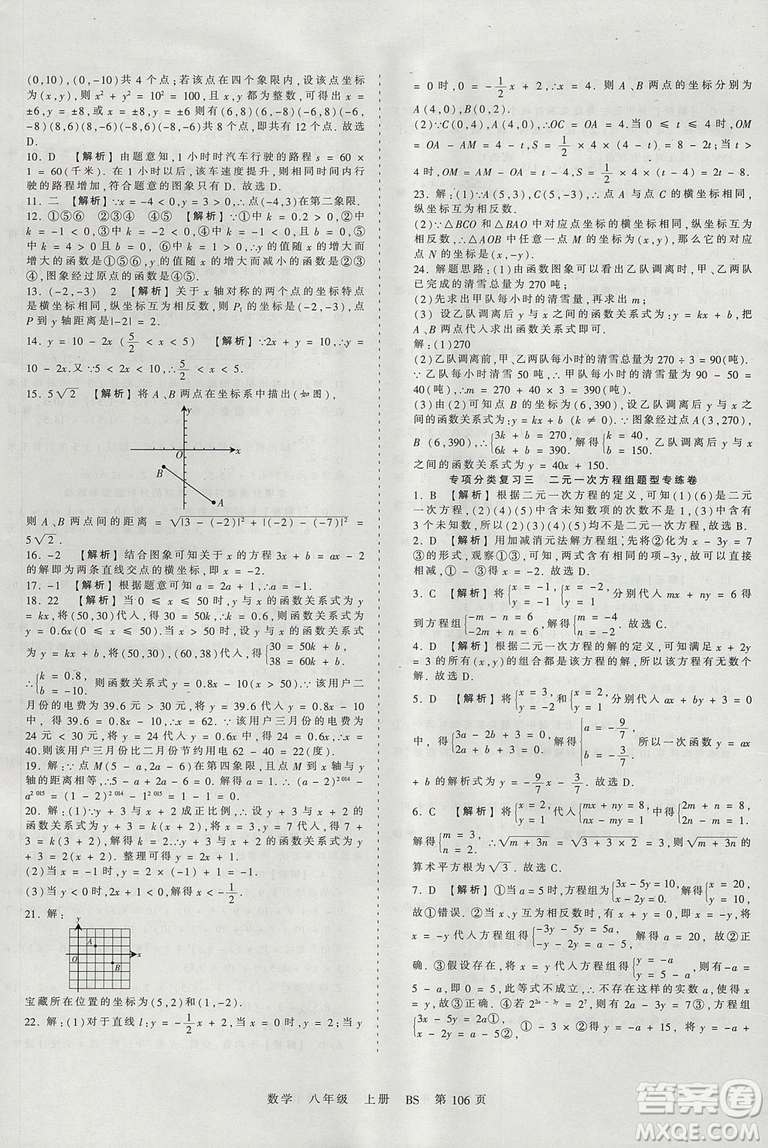 (0,10),(0,-10)共4个点;若该点在四个象限内,设该点坐标
为(x,y),则x² + y² = 10² = 100,因为坐标都为整数,可得出x =
±6,y = ±8或x = ±8,y = ±6,可得(6,8)(6,-8)(-6,8)(-6,
-8)(8,6)(8,-6)(-8,6)(-8,-6)8个点.综上共有12个点.故选
D.
10. D 【解析】由题意知,1小时时汽车行驶的路程s = 60 ×
1 = 60(千米).在1小时以后,该车速度提升,并用1小时时间内行
驶的路程增加,符合题意的图象只有D.故选D.
11. 二 【解析】∵x = -4 < 0,y = 3 > 0,∴点(-4,3)在第二象限.
12. ①⑤⑥ ②③④ ④⑤⑥ 【解析】∵①中k = 0.2 > 0,②中
k = -1 < 0,③中k = -1 < 0,b = 7 > 0,④中k = -√3 < 0,⑤中
k = 4 > 0,⑥中k = 3 > 0且b = 0,∴y的值随x的增大而增大
的函数是①⑤⑥,y的值随x的增大而减小的函数是②③④.
图象经过原点的函数是④⑤⑥.
13. (-2,-3) 2 【解析】关于x对称的两个点的坐标特点
是横坐标相同,纵坐标互为相反数,所以P₁的坐标为(-2,-3),点
P到y轴距离为|-2| = 2.
14. y = 10 - 2x(5/2 < x < 5) 【解析】∵2x + y = 10,∴y =
10 - 2x.又∵x < y < 2x,∴5/2 < x < 5.
15. 5√2 【解析】将A、B两点在坐标系中描出(如图),
y
O
x
A
B
则A、B两点间的距离 = √|3 - (-2)|² + |-2 - (-7)|² =
5√2.
16. -2 【解析】结合图象可知关于x的方程3x + b = ax - 2
的解即为两条直线交点的横坐标,即x = -2.
17. -1 【解析】根据题意可知,a = 2a + 1,解得a = -1.
18. 22 【解析】当0 ≤ x ≤ 50时,y与x的函数关系式为y =
kx,代入(50,30),得k = 0.6,则函数关系式
为y = 0.6x(0 ≤ x ≤ 50);当x > 50时,y与x的函数关系式为
y = kx + b,将(50,30),(60,38)代入,得{30 = 50k + b, 38 = 60k + b,解得
{k = 0.8, b = -10,则函数关系式为y = 0.8x - 10.∵该用户二
月份的电费为39.6元 > 30元,将y = 39.6代入y = 0.8x - 10,
得39.6 = 0.8x - 10,解得x = 62.∵该用户三月份的电费为24
元 < 30元,将y = 24代入y = 0.6x,得24 = 0.6x,解得x =
40.则该用户三月份比二月份节约用电62 - 40 = 22(度).
19. 解:∵点M(5 - a,2 - 6a)在第四象限,且到x轴与y
轴的距离相等,∴5 - a + 2 - 6a = 0,解得a = 1,∴(-a)²⁰¹⁴ -
a²⁰¹⁵ = (-1)²⁰¹⁴ - 1²⁰¹⁵ = 1 - 1 = 0.
20. 解:(1)∵y + 3与x + 2成正比例,∴设y + 3与x + 2的
函数关系式为y + 3 = k(x + 2),将x = 3,y = 7代入,得7 +
3 = k(3 + 2),解得k = 2,∴y + 3 = 2(x + 2),整理得y = 2x + 1.
(2)当x = -1时,y = 2x + 1 = -2 + 1 = -1.
(3)当y = 0时,2x + 1 = 0,解得x = -1/2.
21. 解:
y
A
O
x
B
宝藏所在位置的坐标为(5,2)和(1,-2).
22. 解:(1)对于直线l:y = -1/2x + 2,当x = 0时,y = 2;当y
= 0时,0 = -1/2x + 2,∴x = 4.则A、B两点的坐标分别为
A(4,0),B(0,2).
(2)∵C(0,4),A(4,0),∴OC = OA = 4,当0 ≤ t ≤ 4时,OM
= OA - AM = 4 - t,S = 1/2 × 4 × (4 - t) = 8 - 2t;当t >
4时,OM = AM - OA = t - 4,S = 1/2 × 4 × (t - 4) = 2t - 8.
23. 解:(1)∵A(5,3),C(5,-3),∴点A与点C的横坐标相等,
纵坐标互为相反数.
(2)∵△BCO和△AOB中对应点坐标的横坐标相等,纵坐标互
为相反数,∴△AOB中任意一点M的坐标为(x,y),则它的对应
点N的坐标为(x,-y).
24. 解题思路:(1)由函数图象可以看出乙队调离时,甲、乙两队
已完成的清雪量为270吨;
(2)先求出甲队每小时的清雪量,再求m的值;
(3)设乙队调离后y与x之间的函数关系式为:y = kx + b,把
A、B两点代入求出函数关系式即可.
解:(1)270
(2)乙队调离前,甲、乙两队每小时的清雪总量为270 ÷ 3 = 90(吨);
∵乙队每小时清雪50吨,∴甲队每小时的清雪量为:90 - 50 =
40(吨),∴m = 270 + 40 × 3 = 390,∴此次任务的清雪总量为390吨.
(3)由(2)可知点B的坐标为(6,390),设乙队调离后y与x之
间的函数关系式为:y = kx + b (k ≠ 0).∵图象经过点A(3,270),
B(6,390),∴{3k + b = 270, 6k + b = 390,解得{k = 40, b = 150.∴乙队调离后y与x
之间的函数关系式为y = 40x + 150.
专项分类复习三 二元一次方程组题型专练卷
1. B 【解析】根据二元一次方程的定义,可知(1)(3)是二元
一次方程,(2)(4)中含未知数项的次数不是1,(5)不是等式,
(6)中含有三个未知数,故(2)(4)(5)(6)均不是二元一次方程.故选B.
2. D 【解析】用加减消元法解方程组,先将②变形为x + y = 7
③的形式,观察①③,可知,两式共有的相同项是-3y,故直接
用① - ③即可消去未知数y.故选D.
3. C 【解析】将{x = -1, y = -1与{x = -2, y = 2代入方程mx + ny = 6可
得方程组{-m - n = 6, -2m + 2n = 6,解得{m = -4, n = -2.故选C.
4. D 【解析】根据二元一次方程的解的定义,可知无数对满
足x + y = 10(x,y)的组合都是方程的解,故有无数解.故选
D.
5. D 【解析】将{x = 3, y = -2和{x = -2, y = 1分别代入ax + by = 3
中,得{3a - 2b = 3, -2a + b = 3,解得{a = -9/7, 故一次函数y = ax
+ b的解析式为y = -9/7x - 3/7.故选D.
6. C 【解析】将{x = 2, y = 1代入{mx + ny = 7, nx - my = 1中得{2m + n = 8, 2n - m = 1.
解得{m = 3, n = 2.∴√m + 3n = √3 + 3 × 2 = √9 = 3,√m + 3n的
算术平方根为√3.故选C.
7. D 【解析】①当a = 5时,方程组为{3x - 5y = 10, x - 2y = 0,解得{x = 20, y = 10.
故①错误.②当x,y互为相反数时,x + y = 0,即x = -y,
将x = -y代入方程组得{-3y - 5y = 2a, -y - 2y = a - 5,解得{a = 20, y = -5.故②正
确.③假设存在,将x = y代入方程组得{3x - 5x = 2a, x - 2x = a - 5,解得{x = -a, x = 5 - a.
∵-a ≠ 5 - a,因此等式也不成立,故不存在这样的实数a,使得
x = y.故③正确.④若2²ᵃ⁻³ʸ = 2⁷,则2a - 3y = 7,方程组为
{3x - 5y = 2a①, x - 2y = a - 5②,① - ② × 3得y = -a + 15,将y = -a +
数学 八年级 上册 BS 第106页
答案圈
MXQE.COM